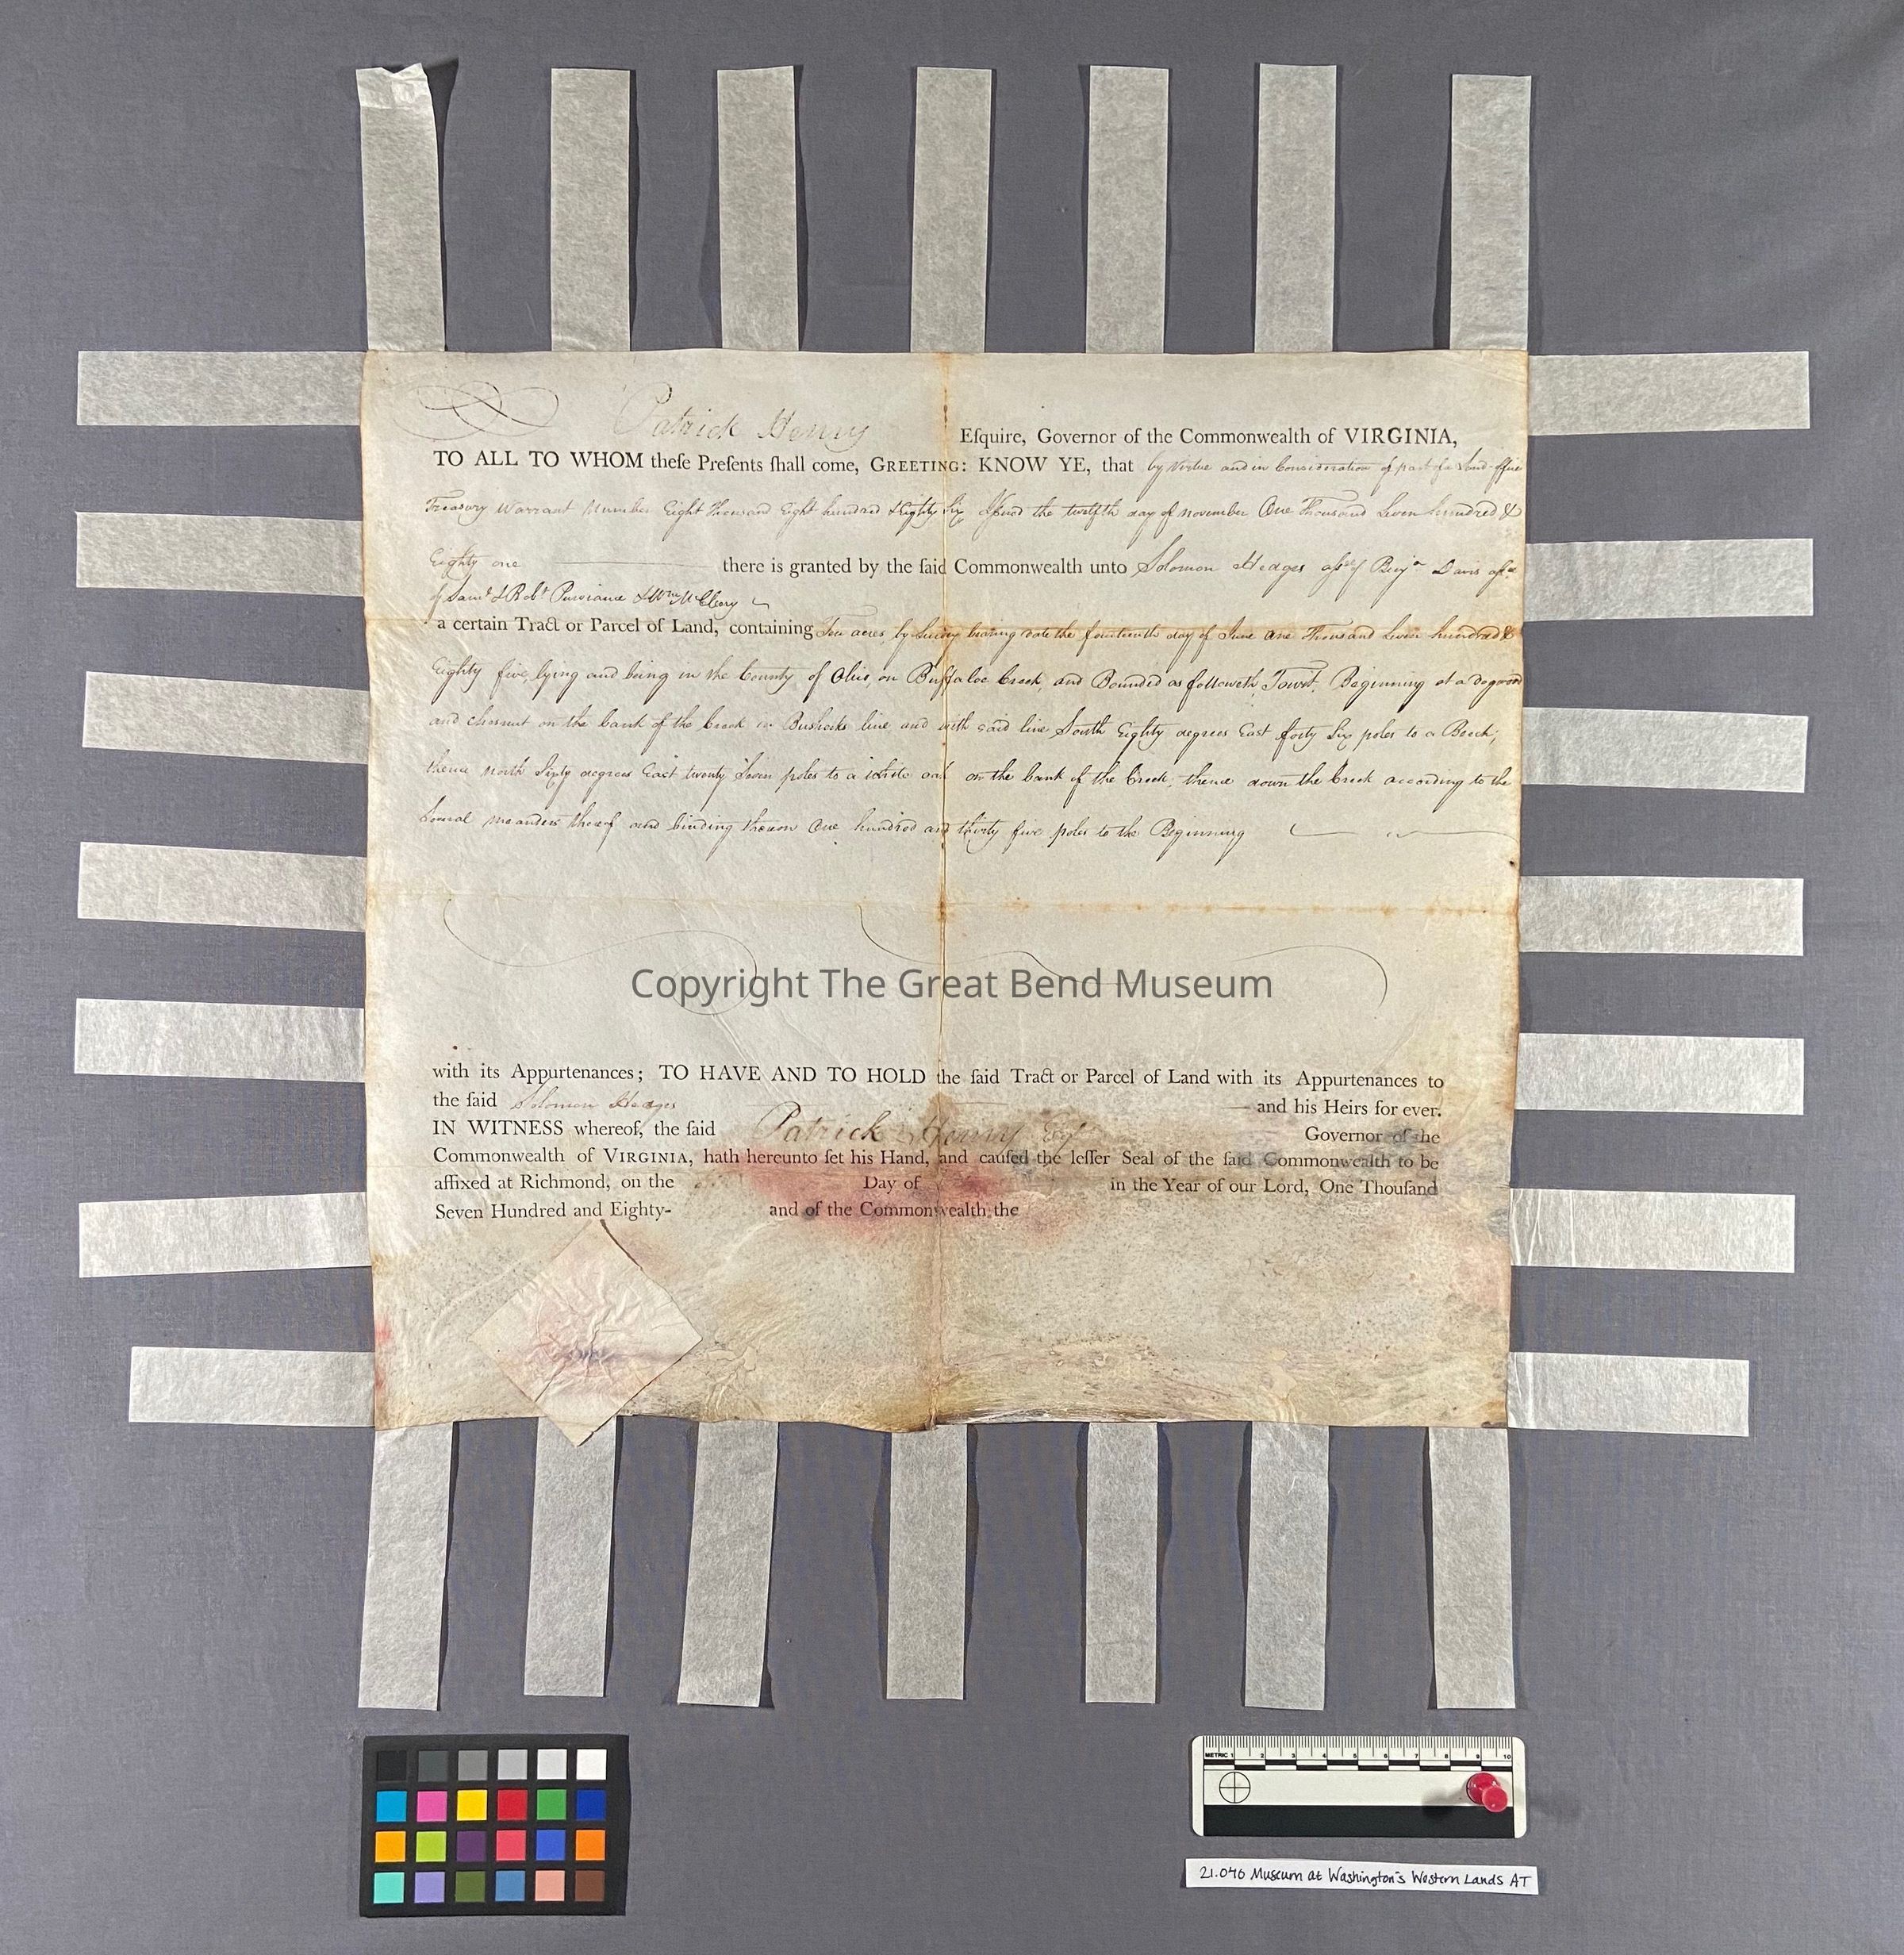 Patrick Henry Eſquire, Governor of the Commonwealth of VIRGINIA,
TO ALL TO WHOM theſe Preſents ſhall come, GREETING: KNOW YE, that by virtue and in Consideration of part of a Land office
Treasury Warrant Number Eight Thousand Eight hundred & Eighty Six Issued the twelfth day of november One Thousand Seven hundred &
Eighty one there is granted by the ſaid Commonwealth unto Solomon Hedges assee of Benjn Davis assee
of Saml & Robt Purviance & Wm McCleery
a certain Tract or Parcel of Land, containing Ten acres, by Survey bearing date the fourteenth day of June One Thousand Seven hundred &
Eighty five, lying and being in the County of Ohio, on Buffaloe Creek, and Bounded as followeth Towit, Beginning at a dogwood
and chesnut on the bank of the Creek in line and with said line South Eighty degrees East forty Six poles to a Beech;
thence north Sixty degrees East twenty Seven poles to a white oak on the bank of the Creek, thence down the Creek according to the
Several meanders thereof and binding thereon One hundred and thirty five poles to the Beginning
Copyright The Great Bend Museum
with its Appurtenances; TO HAVE AND TO HOLD the ſaid Tract or Parcel of Land with its Appurtenances to
the ſaid Solomon Hedges and his Heirs for ever.
IN WITNESS whereof, the ſaid Patrick Henry Esqr Governor of the
Commonwealth of VIRGINIA, hath hereunto ſet his Hand, and cauſed the leſſer Seal of the ſaid Commonwealth to be
affixed at Richmond, on the Day of in the Year of our Lord, One Thouſand
Seven Hundred and Eighty- and of the Commonwealth the
METRIC 1 2 3 4 5 6 7 8 9 10
21.040 Museum at Washington's Western Lands AT